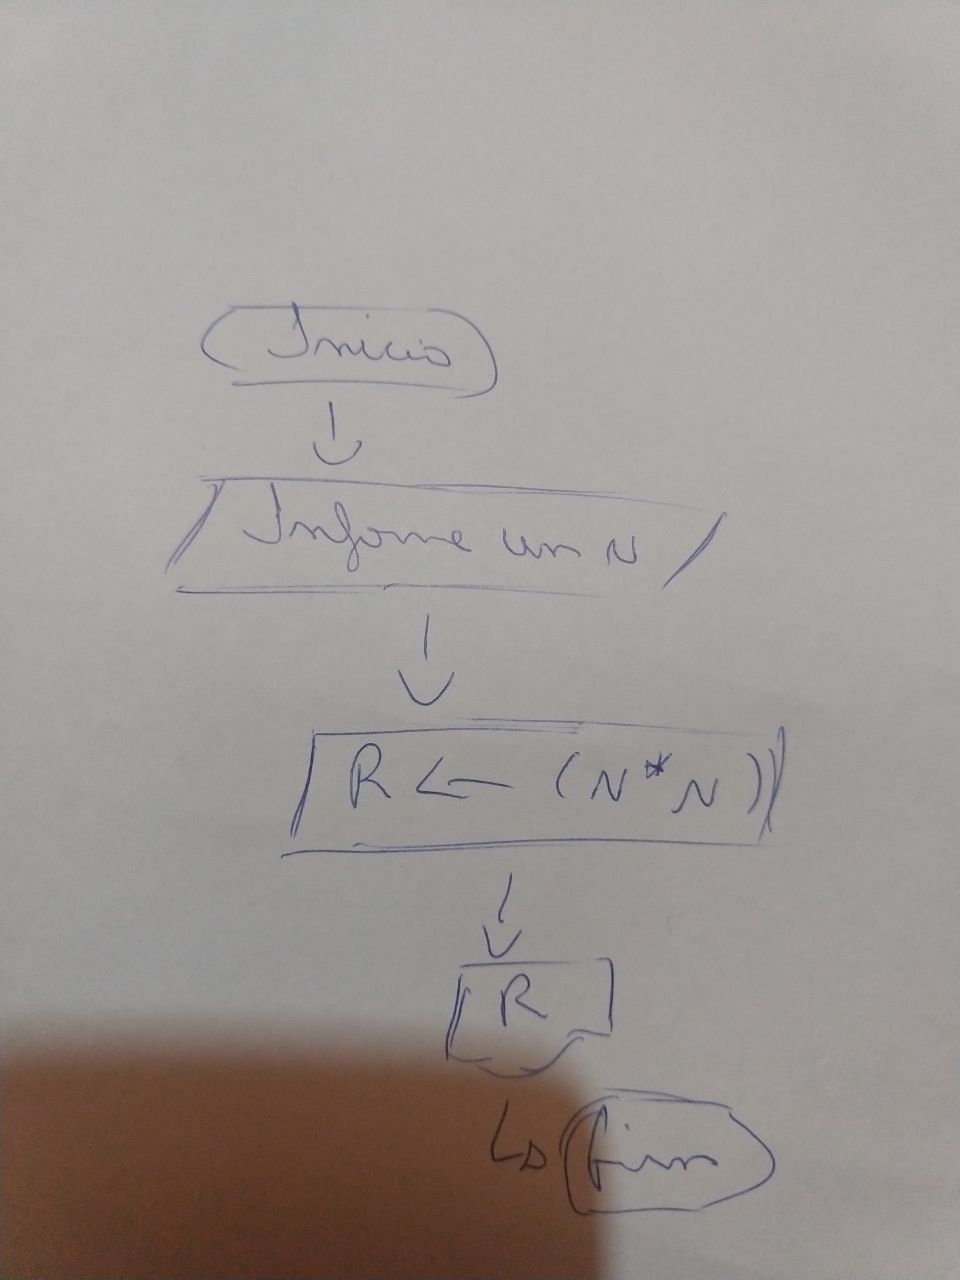 Inicio
Informe um N
R ← (N*N)
R
fim